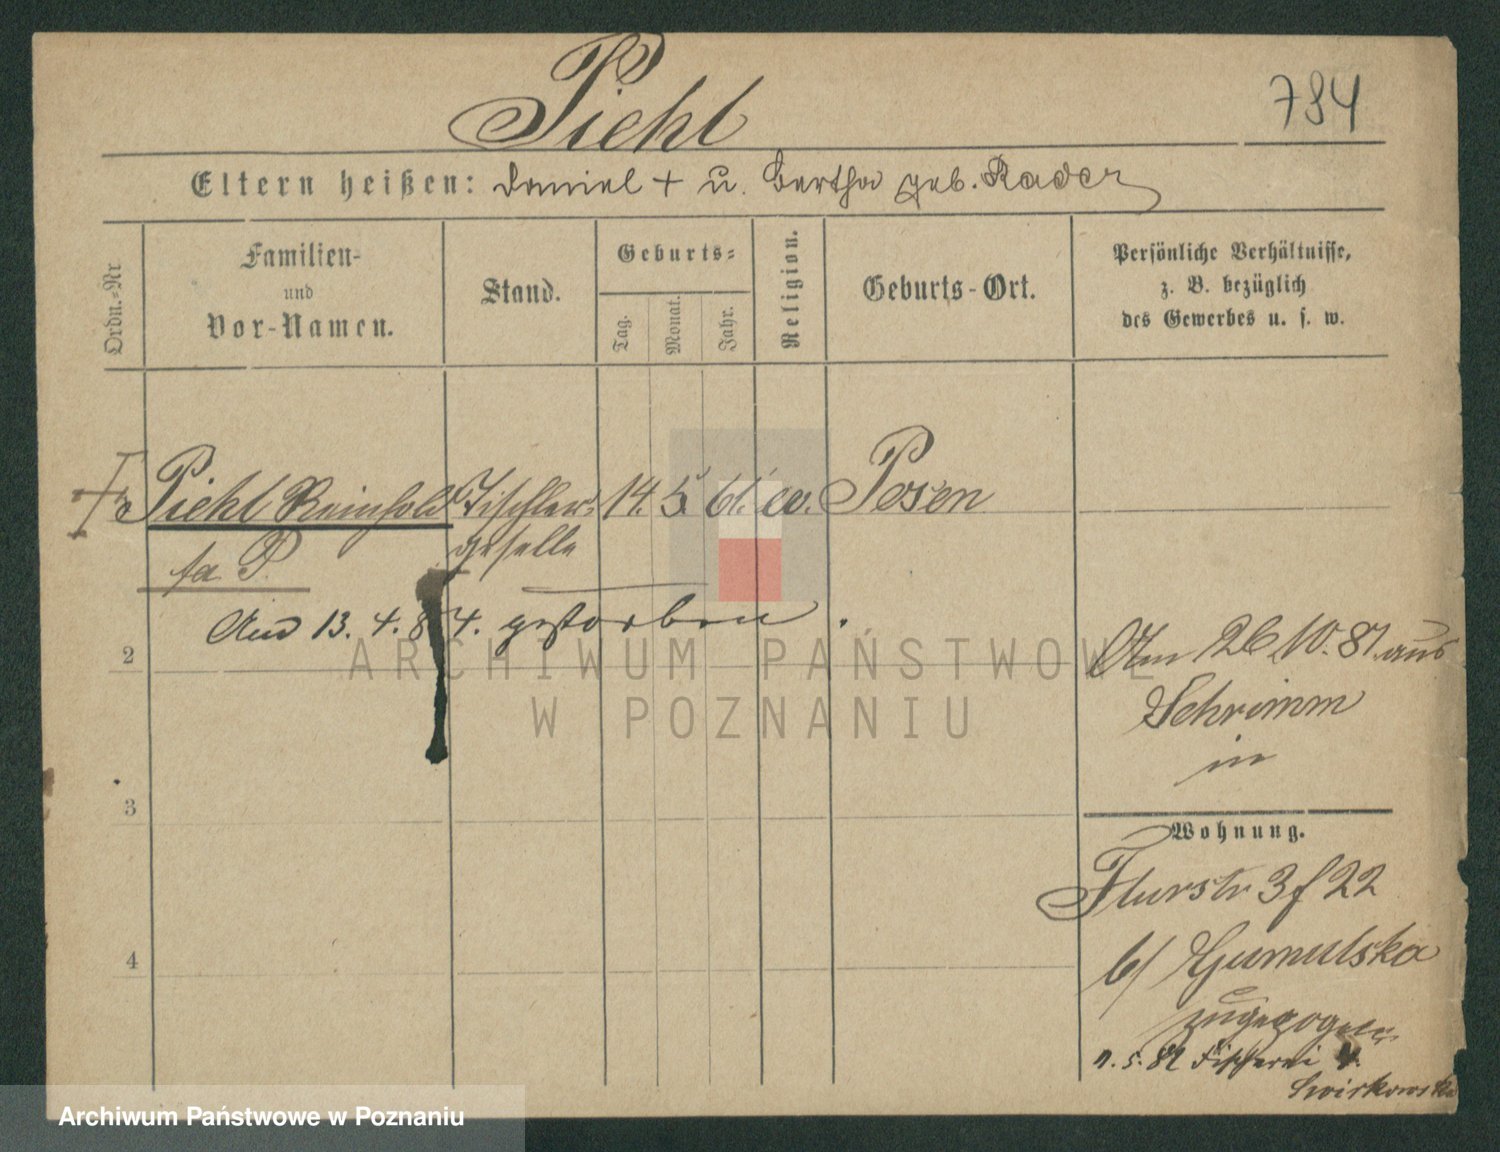 Piehl
784
Eltern heißen: Daniel + u. Bertha geb. Rader
Ordn.-Nr
Familien-
und
Vor-Namen.
Stand.
Geburts-
Tag.
Monat.
Jahr.
Religion.
Geburts-Ort.
Persönliche Verhältnisse,
z. B. bezüglich
des Gewerbes u. s. w.
Piehl Reinhold Tischler- 14. 5. 61. ev. Posen
geselle
fa. P.
13. 4. 84. gestorben.
2
Am 26/10. 81. aus
Schrimm
in
3
Wohnung.
Flurstr 3 f 22
b/ Gumulska
4
zugezogen
5. 82 Fischerei 4.
Swirkowska
ARCHIWUM PAŃSTWOWE
W POZNANIU
Archiwum Państwowe w Poznaniu